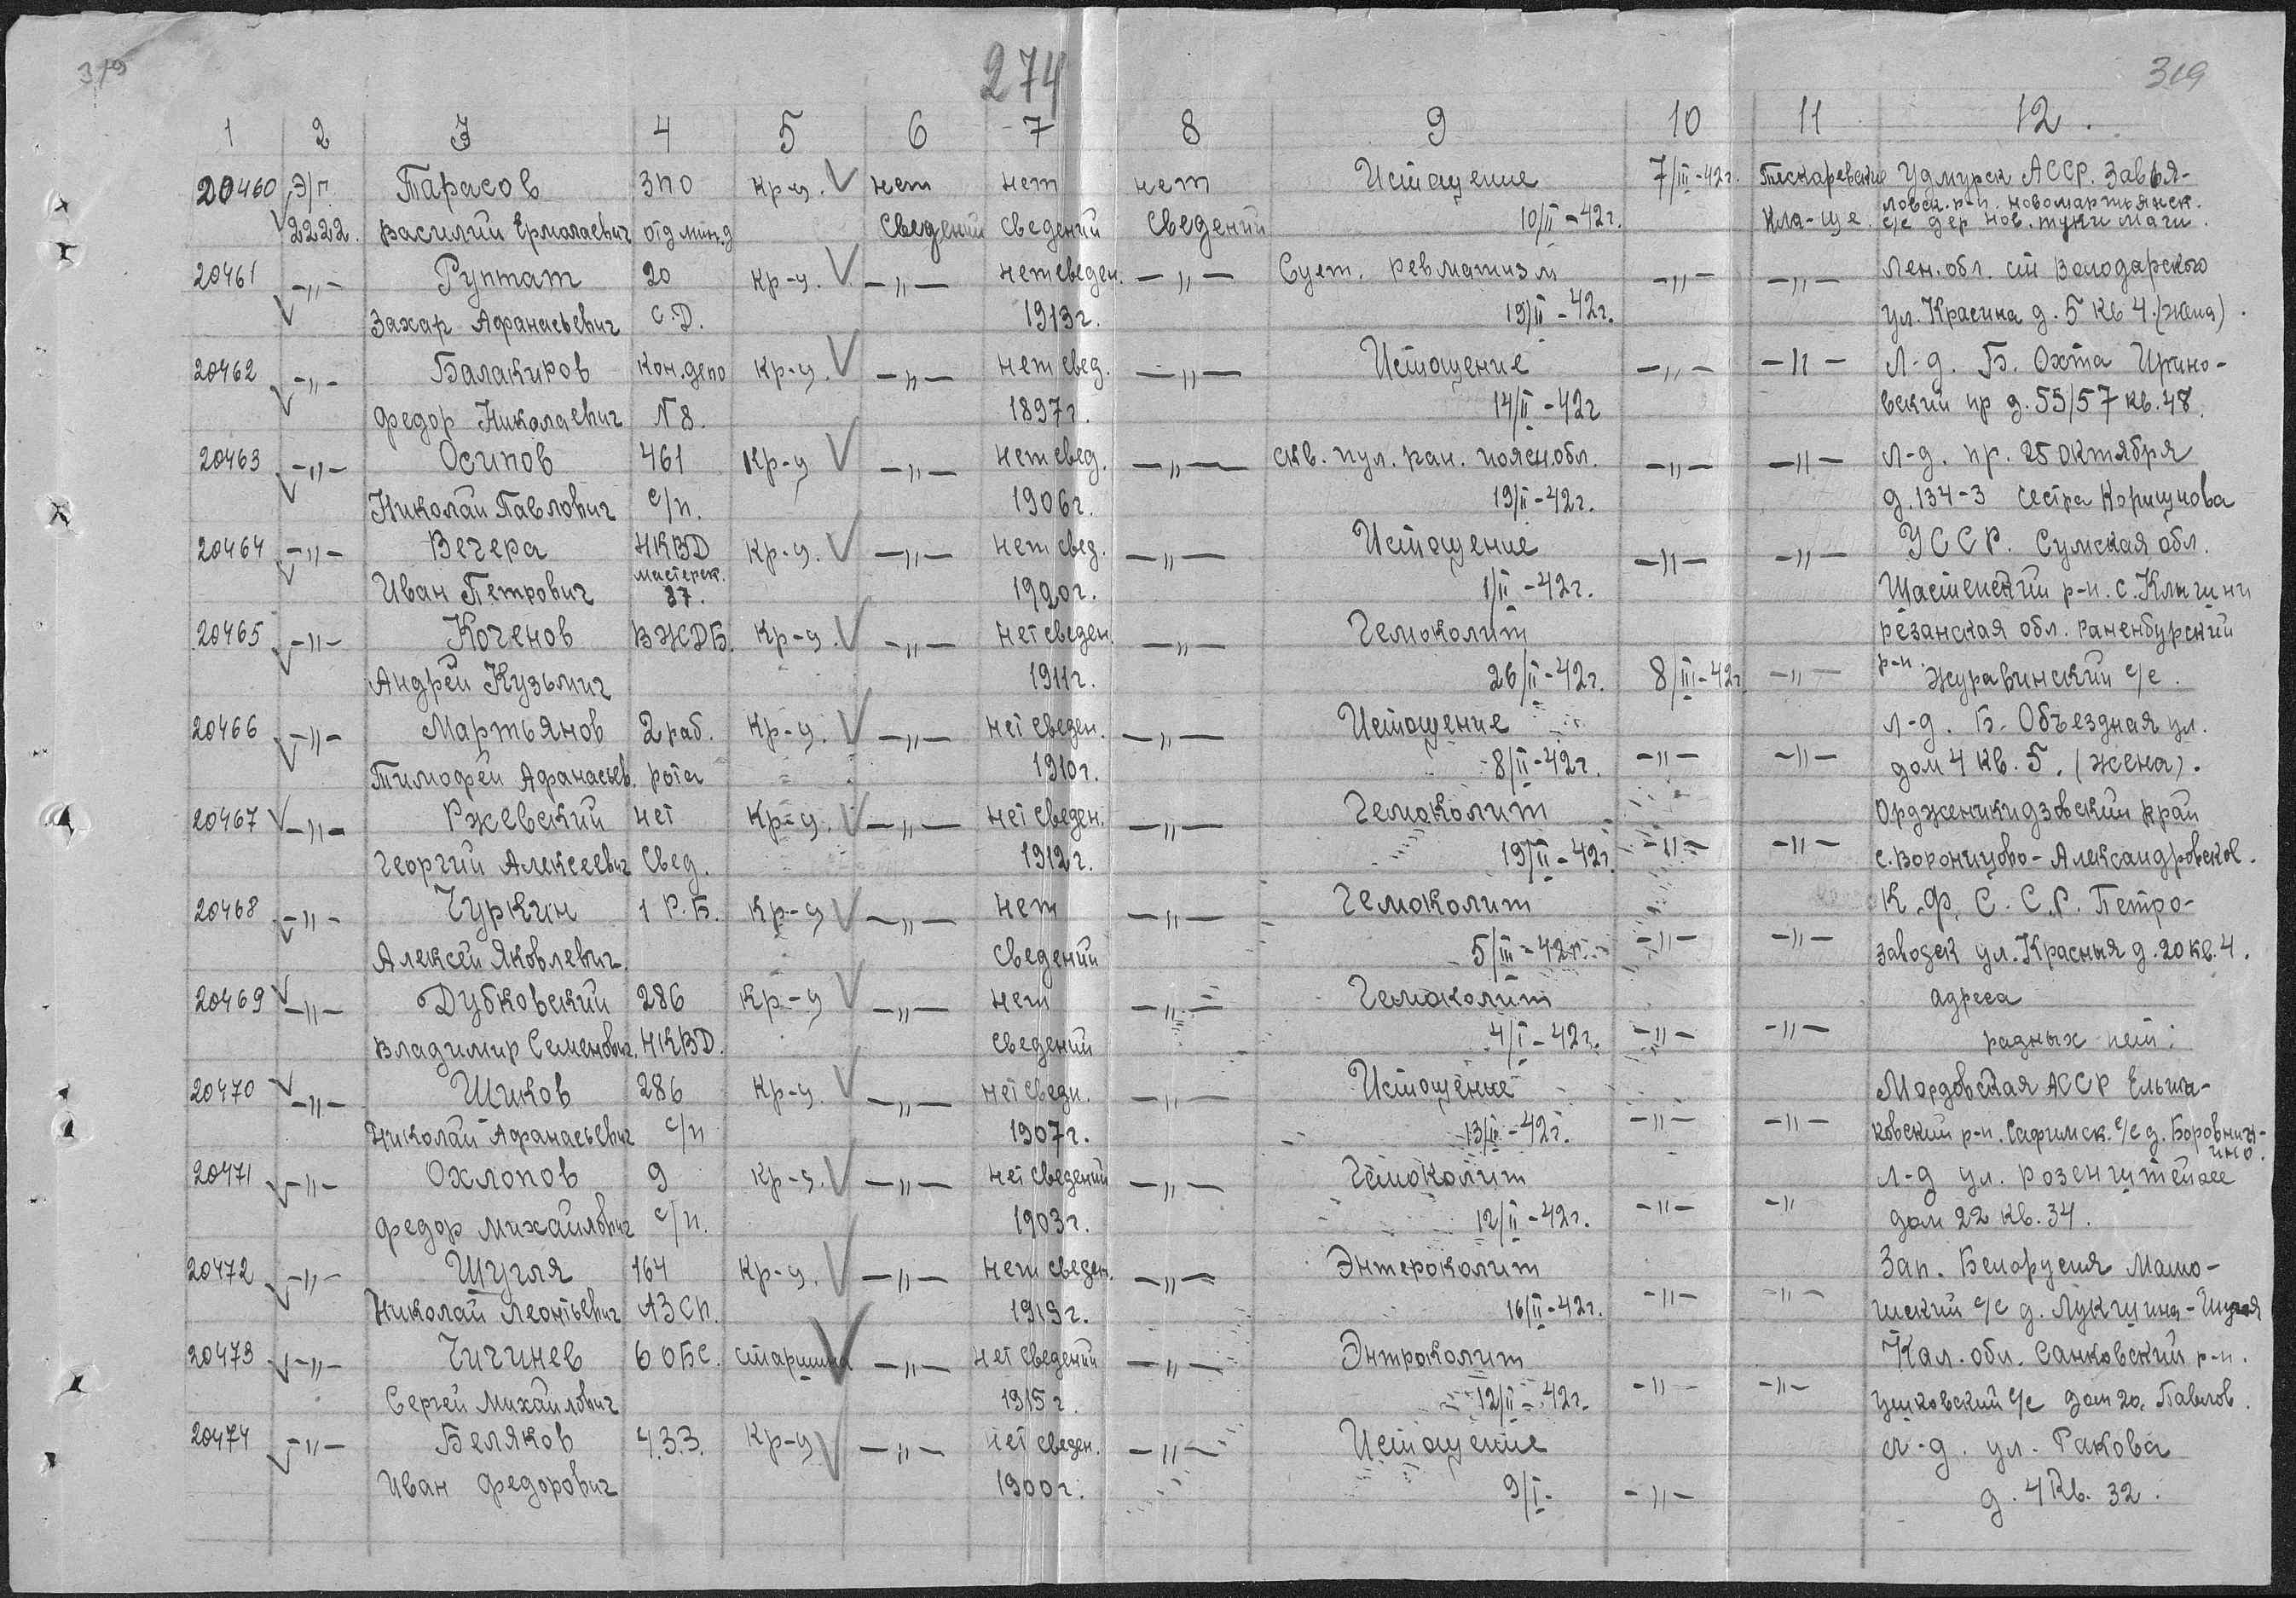 319 274 319
1 2 3 4 5 6 7 8 9 10 11 12.
20460 Э/г. Тарасов зпо кр-ц. V нет нет нет Истощение 7/III-42г. Пескаревские Удмурск АССР. Завья-
ловск. р-н. новомартьянск.
V 2222. Василий Ермолаевич отд мин.д сведений сведений сведений 10/II-42г. Кла-ще. с/с дер нов.
20461 -"- Руптат 20 кр-ц. V -"- нет сведен. -"- Суст. ревматизм -"- -"- Лен. обл. ст Володарского
V Захар Афанасьевич С.Д. 1913г. 19/II-42г. ул. Красина д. 5 кв 4. (жена).
20462 -"- Балакиров Кон.депо кр-ц. V -"- нет свед. -"- Истощение -"- -"- Л-д. Б. Охта Ирино-
V Федор Николаевич N 8. 1897г. 14/II-42г вский пр д. 55/57 кв. 48.
20463 -"- Осипов 461 кр-ц V -"- нет свед. -"- скв. пул. ран. поясн. обл. -"- -"- Л-д. пр. 25 октября
V Николай Павлович с/п. 1906г. 19/II-42г. д. 134-3 сестра Коршунова
20464 -"- Вечера НКВД кр-ц. V -"- нет свед. -"- Истощение -"- -"- УССР. Сумская обл.
V Иван Петрович мастерск. 37. 1920г. 1/II-42г. р-н. с.
20465 -"- Коченов ВЖДБ. кр-ц. V -"- нет сведен. -"- Гемоколит Резанская обл. Раненбурский
V Андрей Кузьмич 1911г. 26/II-42г. 8/III-42г. -"- р-н. Журавинский с/с.
20466 -"- Мартьянов 2 раб. кр-ц. V -"- нет сведен. -"- Истощение Л-д. Б. Объездная ул.
V Тимофей Афанасьев. рота 1910г. 8/II-42г. -"- -"- дом 4 кв. 5. (жена).
20467 V -"- Ржевский нет кр-ц. V -"- нет сведен. -"- Гемоколит Орджоникидзовский край
Георгий Алексеевич свед. 1912г. 19/II-42г. -"- -"- с. Воронцово-Александровское.
20468 -"- Чуркин 1 Р.Б. кр-ц V -"- нет -"- Гемоколит К.Ф.С.С.Р. Петро-
V Алексей Яковлевич. сведений 5/III-42г. -"- -"- заводск ул. Красная д. 20 кв. 4.
20469 V -"- Дубковский 286 кр-ц V -"- нет -"- Гемоколит адреса
Владимир Семенович. НКВД. сведений 4/I-42г. -"- -"- родных нет.
20470 V -"- Шиков 286 кр-ц. V -"- нет сведн. -"- Истощение Мордовская АССР Ельни-
Николай Афанасьевич с/п 1907г. 13/II-42г. -"- -"- ковский р-н. с/с д.
20471 -"- Охлопов 9 кр-ц. V -"- нет сведений -"- Гемоколит Л-д ул. Розенштейнее
V Федор Михайлович с/п. 1903г. 12/II-42г. -"- -"- дом 22 кв. 34.
20472 -"- Щугля 164 кр-ц. V -"- нет сведен. -"- Энтероколит Зап. Белорусия
V Николай Леонтьевич АЗСп. 1919г. 16/II-42г. -"- -"- с/с д.
20473 -"- Чичинев 6 ОБС. старшина V -"- нет сведений -"- Энтроколит Кал. обл. Санковский р-н.
V Сергей Михайлович 1915г. 12/II-42г. -"- -"- с/с дом 20.
20474 -"- Беляков 4.З.З. кр-ц V -"- нет сведен. -"- Истощение Л-д. ул. Ракова
V Иван Федорович 1900г. 9/I- -"- д. 4 Кв. 32.